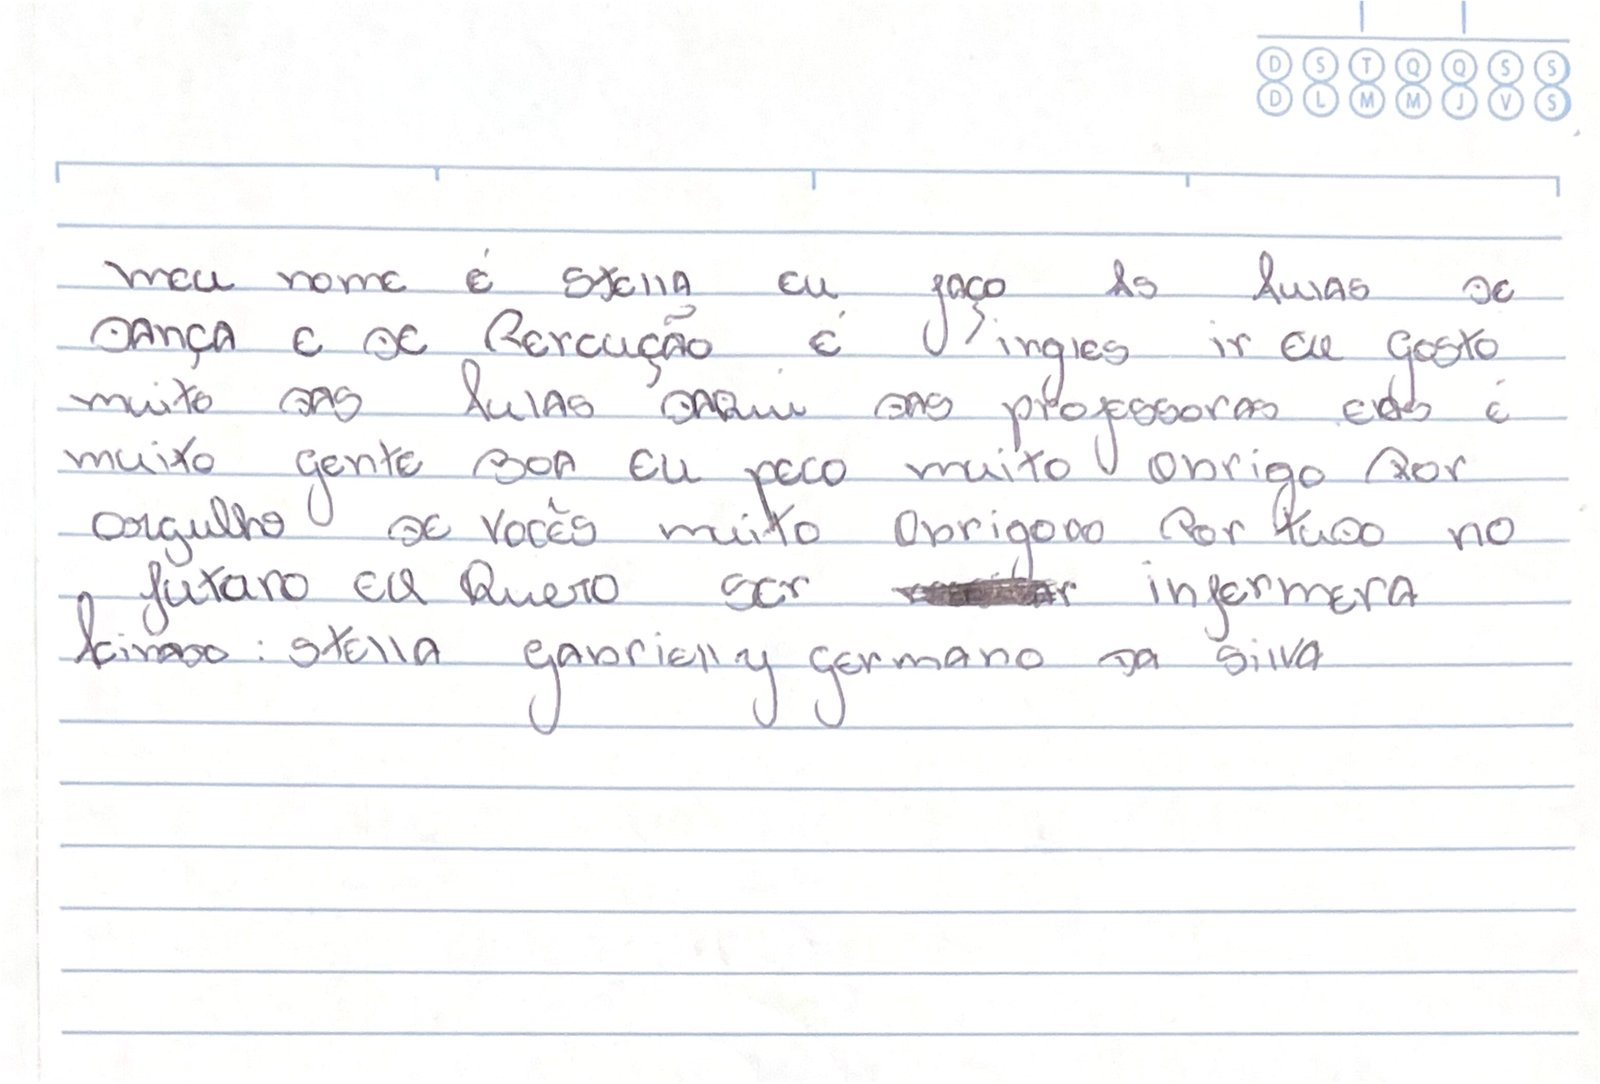 D S T Q Q S S
D L M M J V S
meu nome é Stella eu faço As Aulas de
dança e de Percução é ingles ir eu gosto
muito das Aulas daqui das professoras elas é
muito gente boa eu peco muito obrigo Por
orgulho de vocês muito obrigodo Por tudo no
futaro eu Quero ser infermera
Acinado: Stella gabrielly germano da Silva